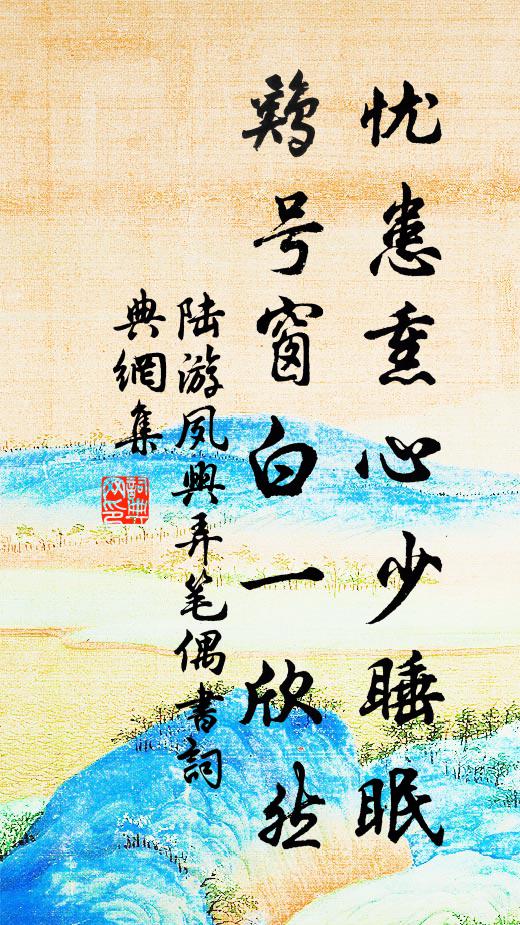 忧患熏心少睡眠
鷄号窗白一欣然
陆游夙興弄笔偶書詞
典網集